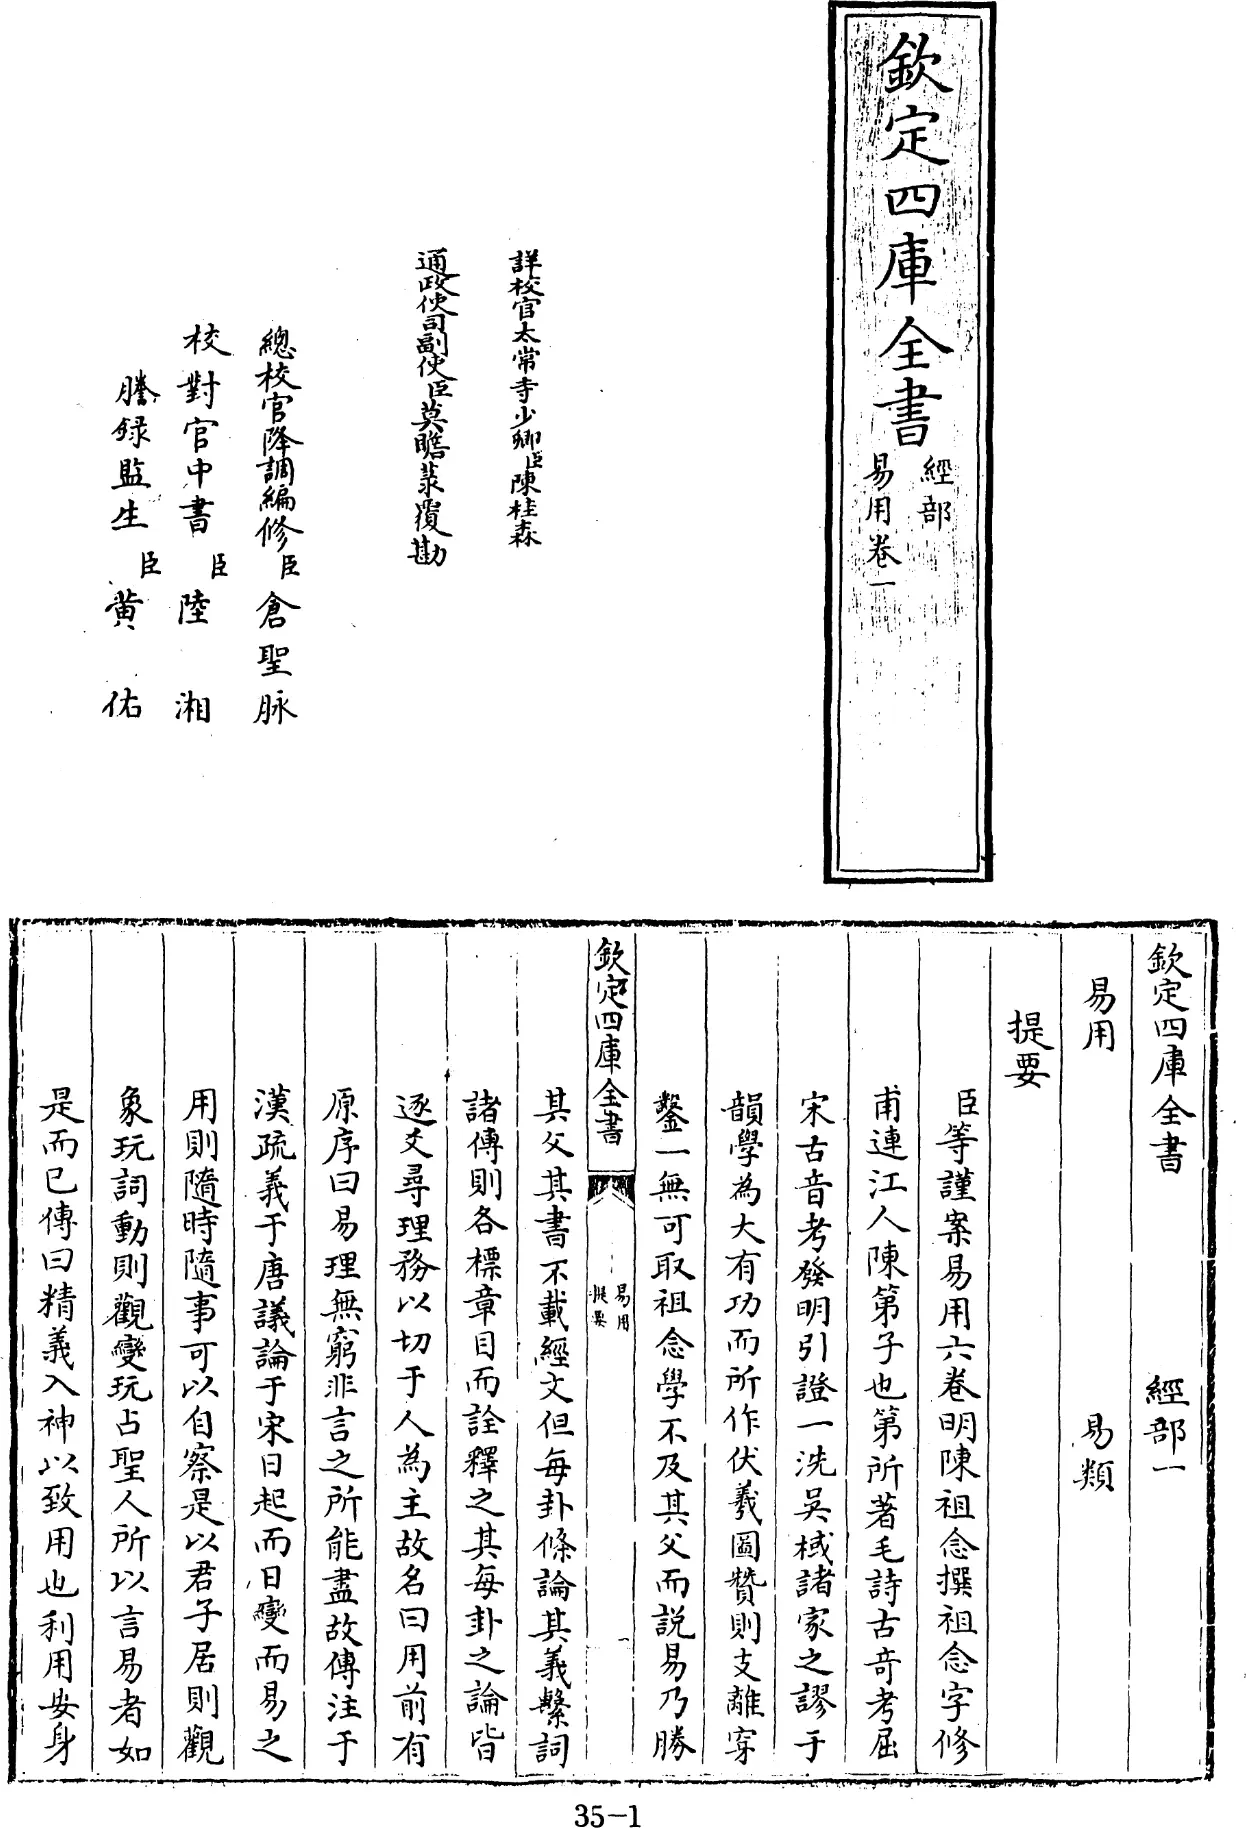 欽定四庫全書
經部
易用卷一
詳校官太常寺少卿臣陳桂森
通政使司副使臣莫瞻菉覆勘
總校官降調編修臣倉聖脉
校對官中書臣陸湘
謄録監生臣黃佑
欽定四庫全書 經部一
易用 易類
提要
臣等謹案易用六卷明陳祖念撰祖念字修
甫連江人陳第子也第所著毛詩古音考屈
宋古音考發明引證一洗吳棫諸家之謬于
韻學為大有功而所作伏羲圖贊則支離穿
鑿一無可取祖念學不及其父而説易乃勝
欽定四庫全書
易用
提要
一
其父其書不載經文但每卦條論其義繫詞
諸傳則各標章目而詮釋之其每卦之論皆
逐爻尋理務以切于人為主故名曰用前有
原序曰易理無窮非言之所能盡故傳注于
漢疏義于唐議論于宋日起而日變而易之
用則隨時隨事可以自察是以君子居則觀
象玩詞動則觀變玩占聖人所以言易者如
是而已傳曰精義入神以致用也利用安身
35-1